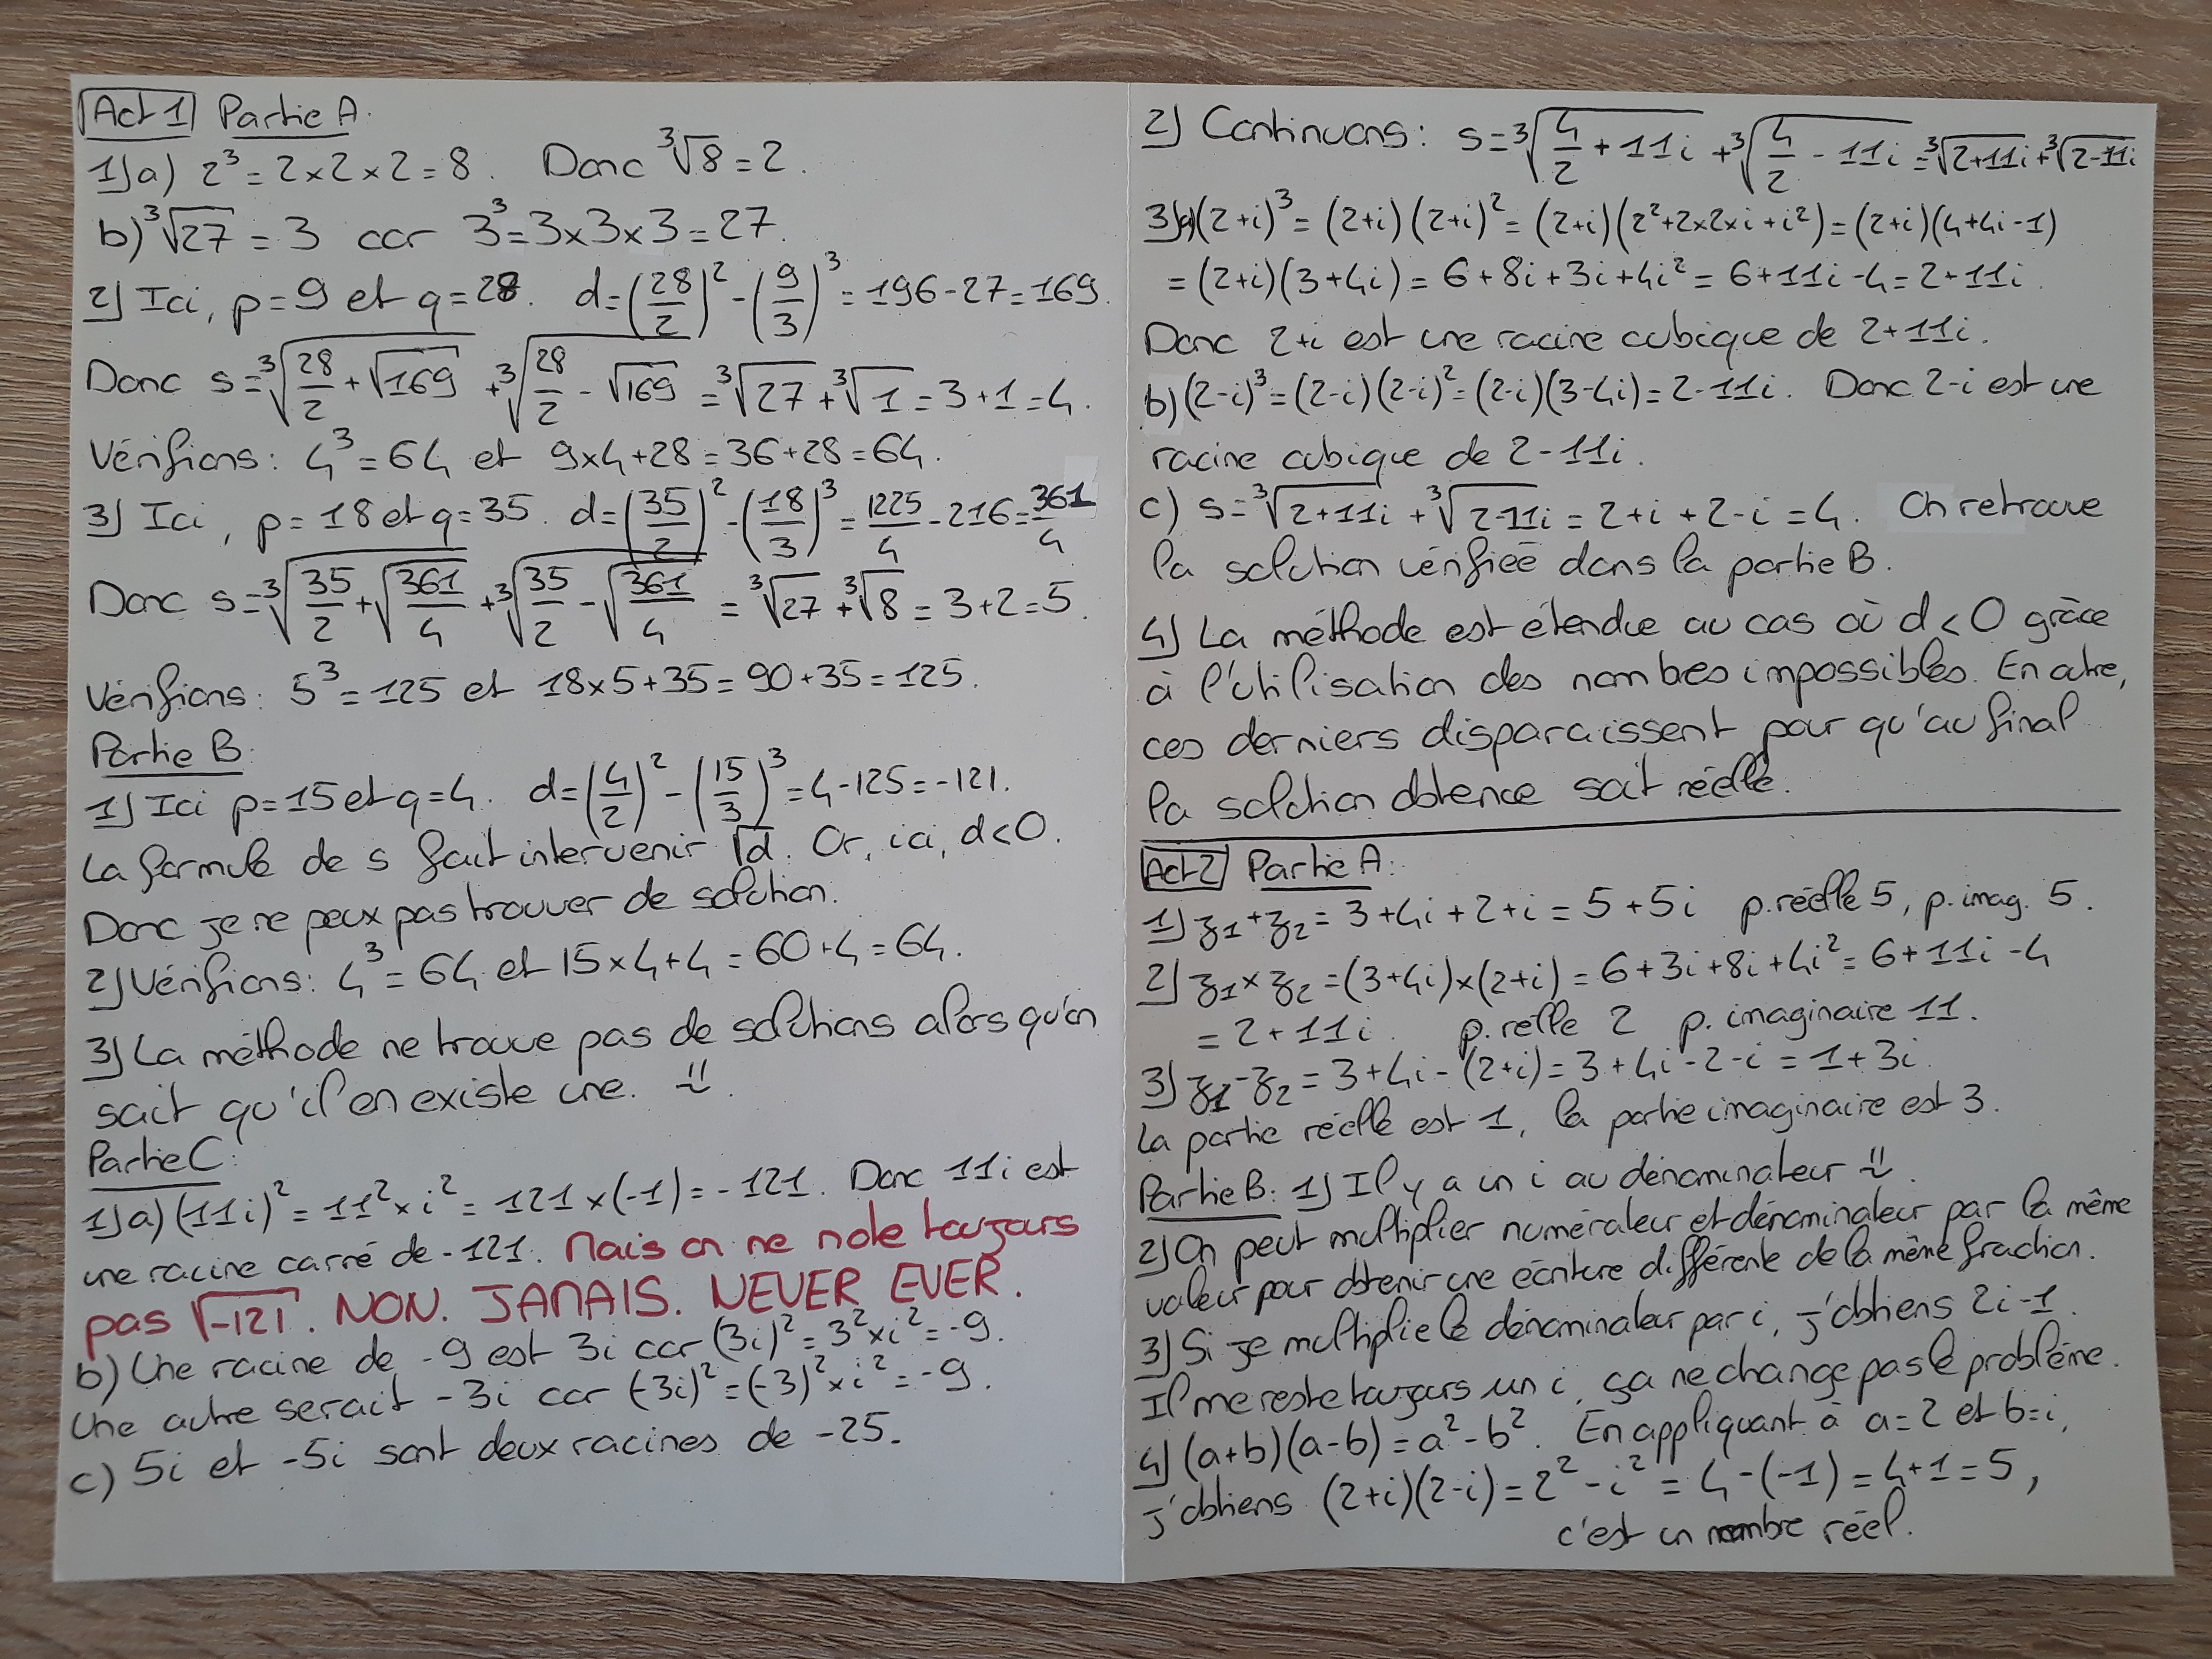 Act 1 Partie A:
1) a) 2³ = 2×2×2 = 8. Donc ³√8 = 2.
b) ³√27 = 3 car 3³ = 3×3×3 = 27.
2) Ici, p = 9 et q = 28. d = (28/2)² - (9/3)³ = 196 - 27 = 169.
Donc s = ³√(28/2 + √169) + ³√(28/2 - √169) = ³√27 + ³√1 = 3 + 1 = 4.
Vérifions : 4³ = 64 et 9×4+28 = 36+28 = 64.
3) Ici, p = 18 et q = 35. d = (35/2)² - (18/3)³ = 1225/4 - 216 = 361/4
Donc s = ³√(35/2 + √(361/4)) + ³√(35/2 - √(361/4)) = ³√27 + ³√8 = 3+2 = 5.
Vérifions : 5³ = 125 et 18×5+35 = 90+35 = 125.
Partie B:
1) Ici p = 15 et q = 4. d = (4/2)² - (15/3)³ = 4 - 125 = -121.
La formule de s fait intervenir √d. Or, ici, d<0.
Donc je ne peux pas trouver de solution.
2) Vérifions : 4³ = 64 et 15×4+4 = 60+4 = 64.
3) La méthode ne trouve pas de solutions alors qu'on
sait qu'il en existe une.
Partie C:
1) a) (11i)² = 11² × i² = 121 × (-1) = -121. Donc 11i est
une racine carré de -121. Mais on ne note toujours
pas √-121. NON. JAMAIS. NEVER EVER.
b) Une racine de -9 est 3i car (3i)² = 3² × i² = -9.
Une autre serait -3i car (-3i)² = (-3)² × i² = -9.
c) 5i et -5i sont deux racines de -25.
2) Continuons : s = ³√(4/2 + 11i) + ³√(4/2 - 11i) = ³√(2+11i) + ³√(2-11i)
3) a) (2+i)³ = (2+i)(2+i)² = (2+i)(2²+2×2×i+i²) = (2+i)(4+4i-1)
= (2+i)(3+4i) = 6+8i+3i+4i² = 6+11i-4 = 2+11i.
Donc 2+i est une racine cubique de 2+11i.
b) (2-i)³ = (2-i)(2-i)² = (2-i)(3-4i) = 2-11i. Donc 2-i est une
racine cubique de 2-11i.
c) s = ³√(2+11i) + ³√(2-11i) = 2+i+2-i = 4. On retrouve
la solution vérifiée dans la partie B.
4) La méthode est étendue au cas où d<0 grâce
à l'utilisation des nombres impossibles. En outre,
ces derniers disparaissent pour qu'au final
la solution obtenue soit réelle.
Act 2 Partie A:
1) z₁+z₂ = 3+4i+2+i = 5+5i p. réelle 5, p. imag. 5.
2) z₁×z₂ = (3+4i)×(2+i) = 6+3i+8i+4i² = 6+11i-4
= 2+11i. p. relle 2 p. imaginaire 11.
3) z₁-z₂ = 3+4i-(2+i) = 3+4i-2-i = 1+3i.
La partie réelle est 1, la partie imaginaire est 3.
Partie B: 1) Il y a un i au dénominateur
2) On peut multiplier numérateur et dénominateur par la même
valeur pour obtenir une écriture différente de la même fraction.
3) Si je multiplie le dénominateur par i, j'obtiens 2i-1.
Il me reste toujours un i, ça ne change pas le problème.
4) (a+b)(a-b) = a²-b². En appliquant à a=2 et b=i,
j'obtiens (2+i)(2-i) = 2²-i² = 4-(-1) = 4+1 = 5,
c'est un nombre réel.